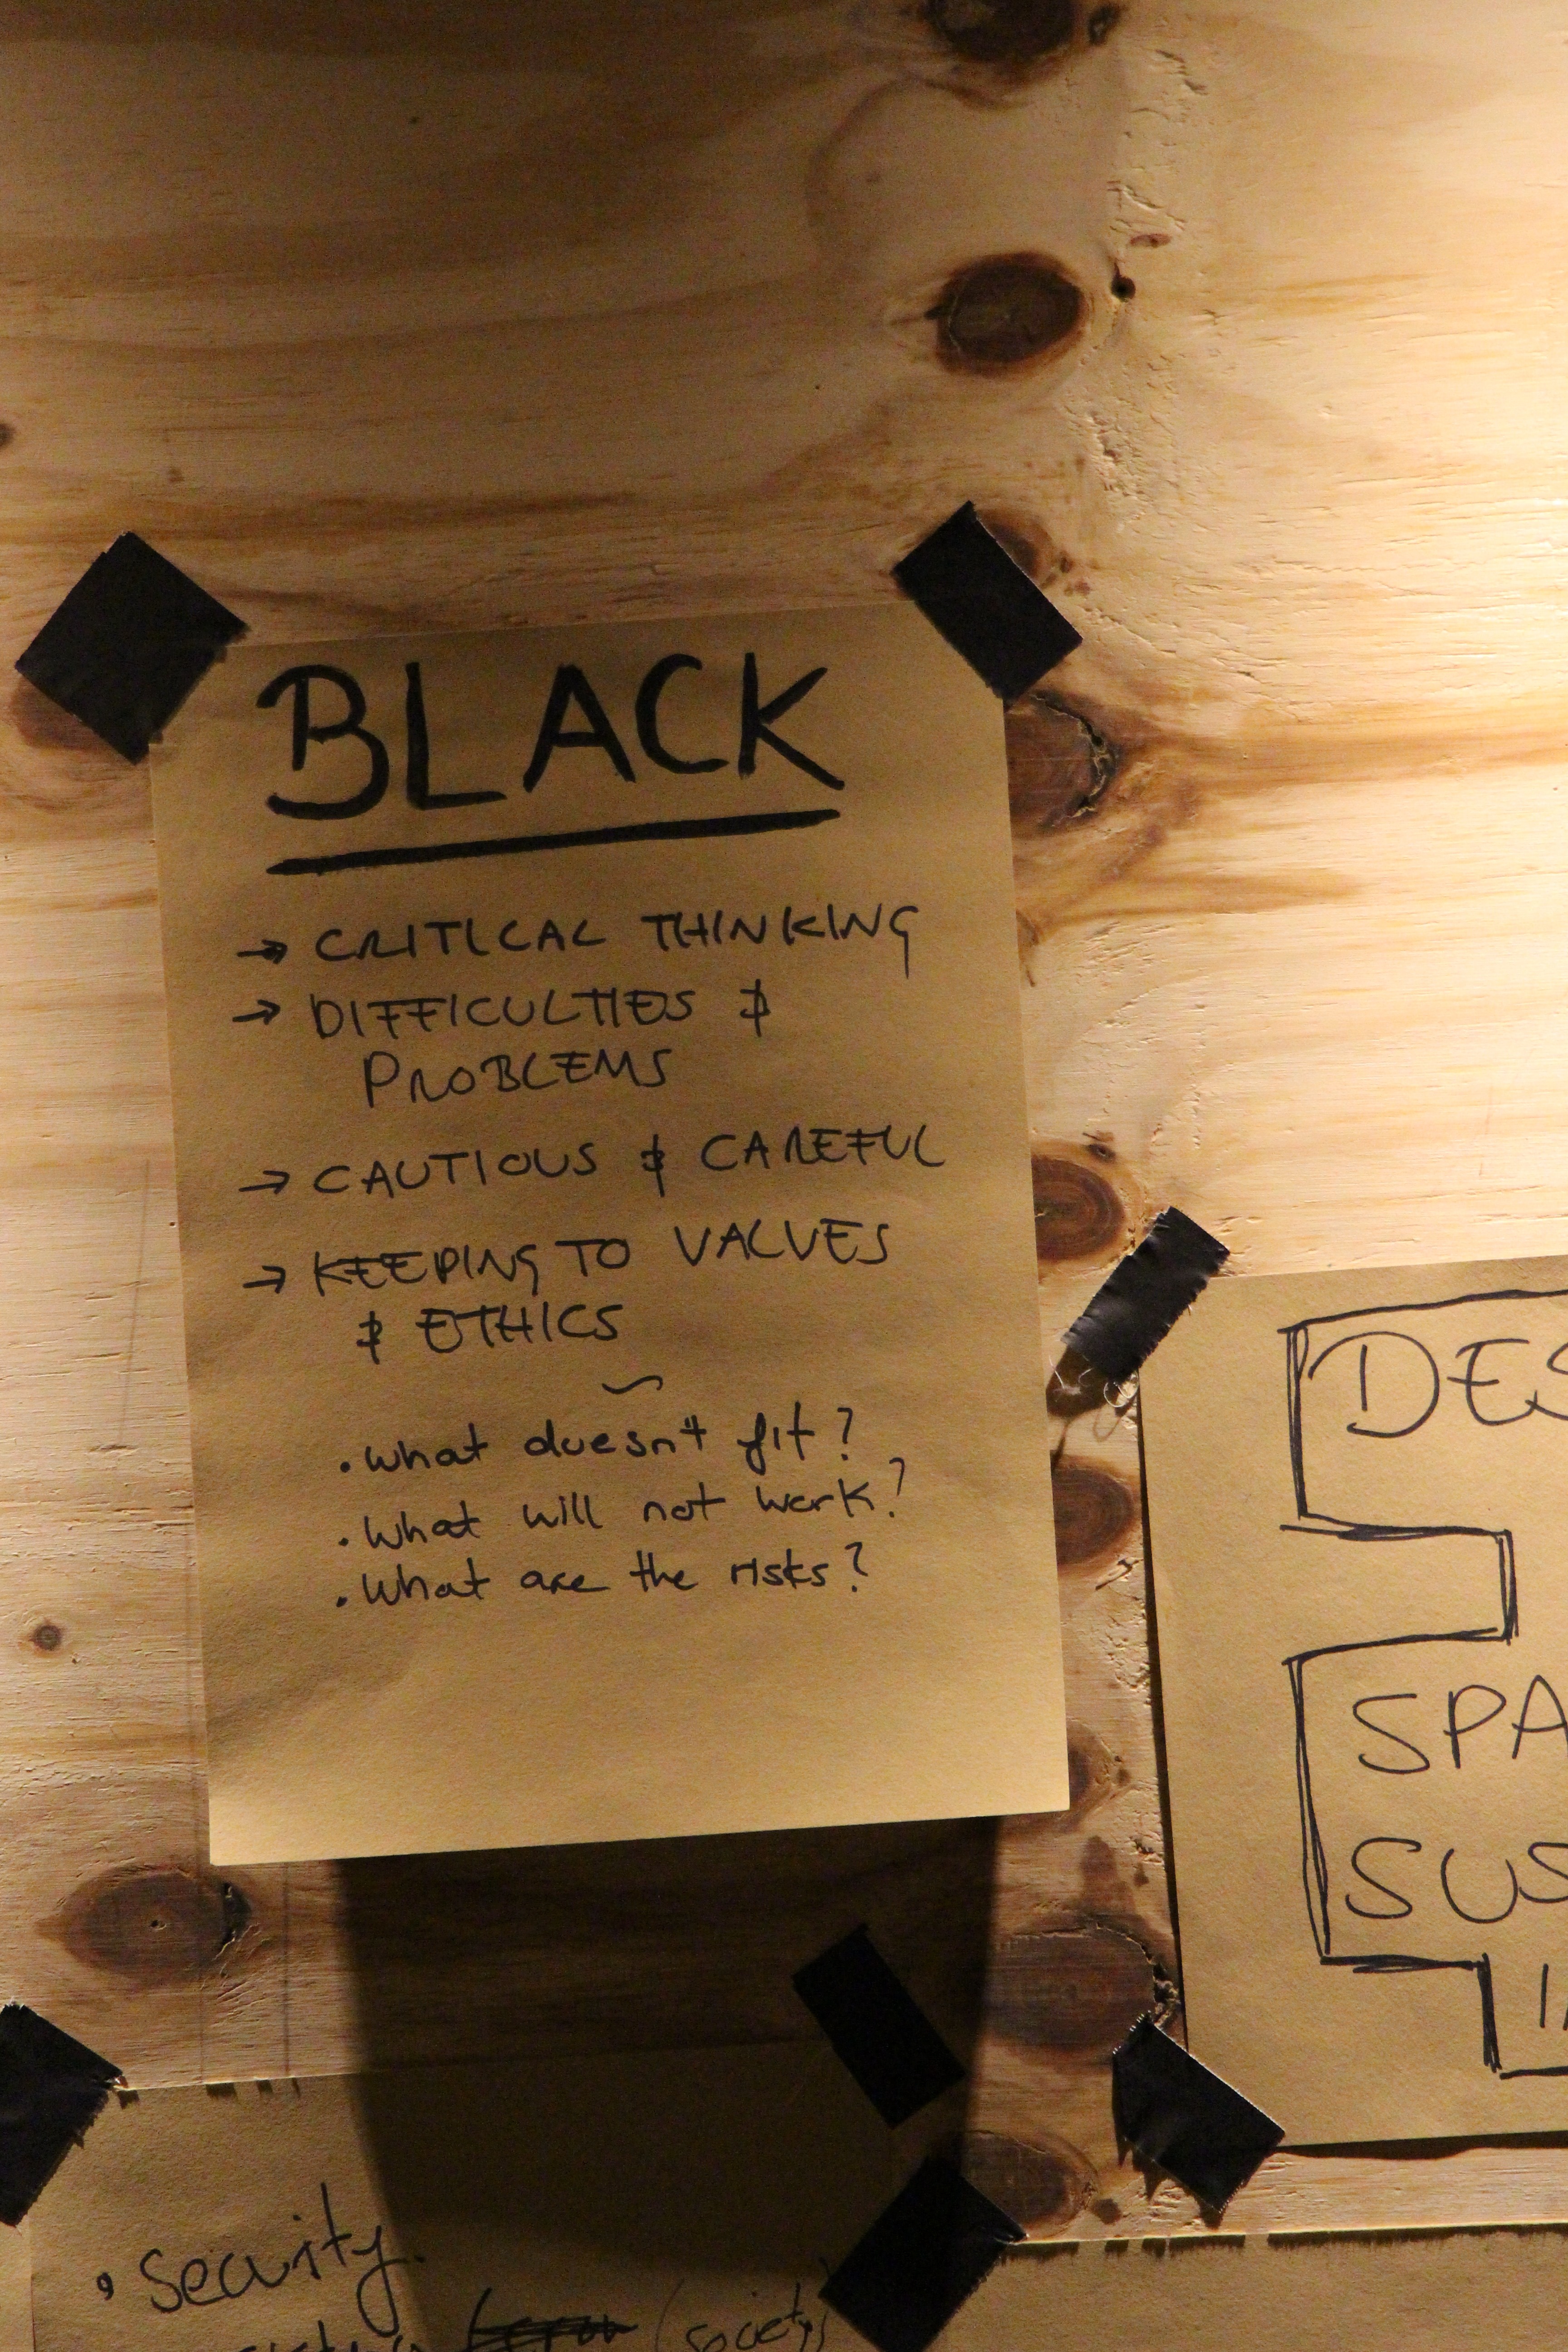 BLACK
→ CRITICAL THINKING
→ DIFFICULTIES &
PROBLEMS
→ CAUTIOUS & CAREFUL
→ KEEPING TO VALUES
& ETHICS
~
. What doesn't fit?
. What will not work?
. What are the risks?
DES
SPA
SUS
• Security.
(society)